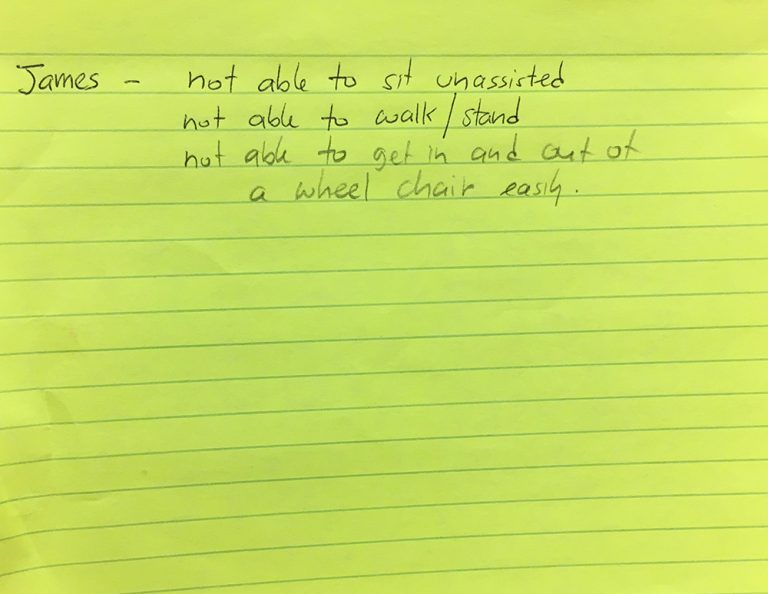 James - not able to sit unassisted
not able to walk/stand
not able to get in and out of
a wheel chair easily.